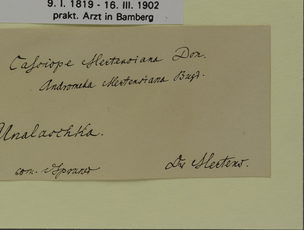 9. I. 1819 - 16. III. 1902
prakt. Arzt in Bamberg
Caſsiope Mertensiana Don.
Andromeda Mertensiana Bong.
Unalaschka.
com. Spruner
Dr Mertens.